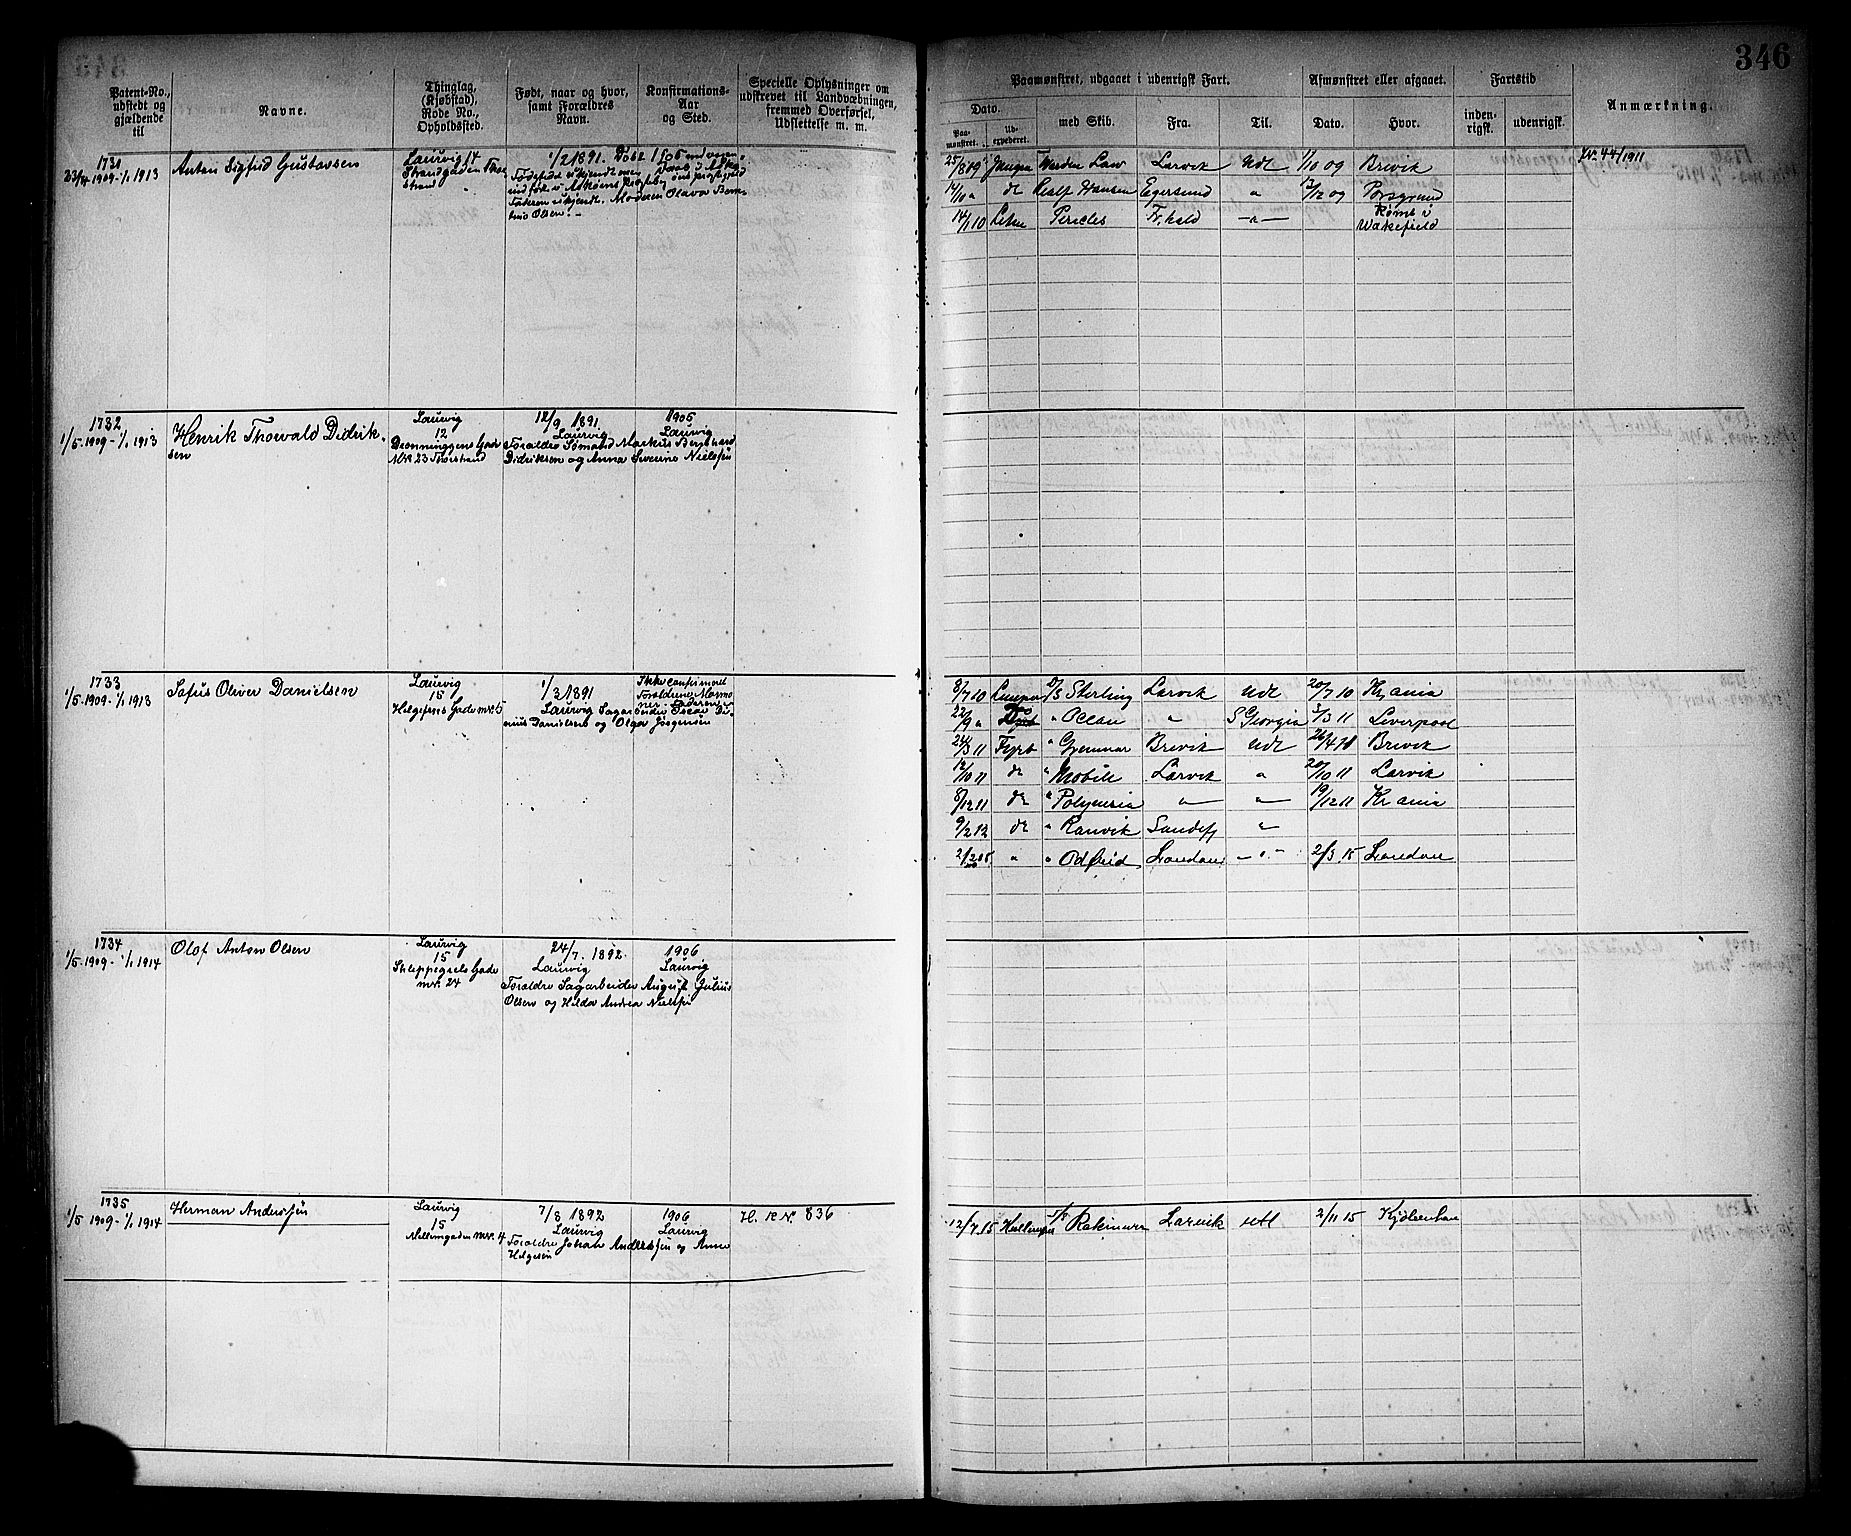 346
Patent-No., udstedt og gjældende til
Navne.
Thinglag, (Kjøbstad), Rode No., Opholdssted.
Født, naar og hvor, samt Forældres Navn.
Konfirmations-Aar og Sted.
Specielle Oplysninger om udskrevet til Landvæbningen, fremmed Overførsel, Udslettelse m. m.
Paamønstret, udgaaet i udenrigsk Fart.
Afmønstret eller afgaaet.
Fartstid
Anmærkning.
Dato.
Paa-mønstret.
Ud-expederet.
med Skib.
Fra.
Til.
Dato.
Hvor.
inden-rigsk.
udenrigsk.
1731
23/4 1909-1/1 1913
Anton Sigfrid Gustavsen
Laurvig 14
Strandgaden Thor
strand
1/2 1891. Døbt 1905
Faderen ukjendt. Moderen Olava
Olsen.
25/8 09 Jungm Warden Law Larvik Udl 1/10 09 Brevik
14/10 " do Realf Hansen Egersund " 13/12 09 Porsgrund
14/1 10 Letm Pericles Fr.hald —"— Rømt i
Wakefield
No. 44/1911
1732
1/5 1909-1/1 1913
Henrik Thorvald Didrik-
sen
Laurvig
12
Dronningens Gade
No. 23 Thorstrand
12/9 1891
Laurvig
1905
Laurvig
Forældre Sømand Markus Bernhard
Didriksen og Anna Severine Nielsen
1733
1/5 1909-1/1 1913
Sofus Oliver Danielsen
Laurvig
15
Helgesens Gade nr. 5
1/3 1891
Laurvig
Ikke confirmeret
Forældrene Mormo
ner.
Sagarbeider Oscar
Danielsen og Olga Jørgensen
8/7 10 Lemper D/S Sterling Larvik Udl 20/7 10 Kr ania
22/9 " " Ocean " S Georgia 3/3 11 Liverpool
24/3 11 Fyrb " Gjennar Brevik Udl 26/4 11 Brevik
12/10 11 do " Mobile Larvik " 20/10 11 Larvik
8/12 11 do " Polymeria " " 19/12 11 Kr ania
9/2 12 do " Ranvik Sandefj "
" " Odfrid London —"— 2/3 15 London
1734
1/5 1909-1/1 1914
Olof Anton Olsen
Laurvig
15
Schleppegrels Gade
nr. 24
24/7. 1892.
Laurvig
1906
Laurvig
Forældre Sagarbeider August Julius
Olsen og Hilda Andrea Nielsen
1735
1/5 1909-1/1 1914
Herman Andersen
Laurvig
15
Mellemgaden nr. 4
7/8 1892
Laurvig
1906
Laurvig
Forældre Johan Andersen og Anne
Helgesen
H. R No. 836
12/7 15 S/S Larvik Udl 2/11 15 Kjøbenhavn